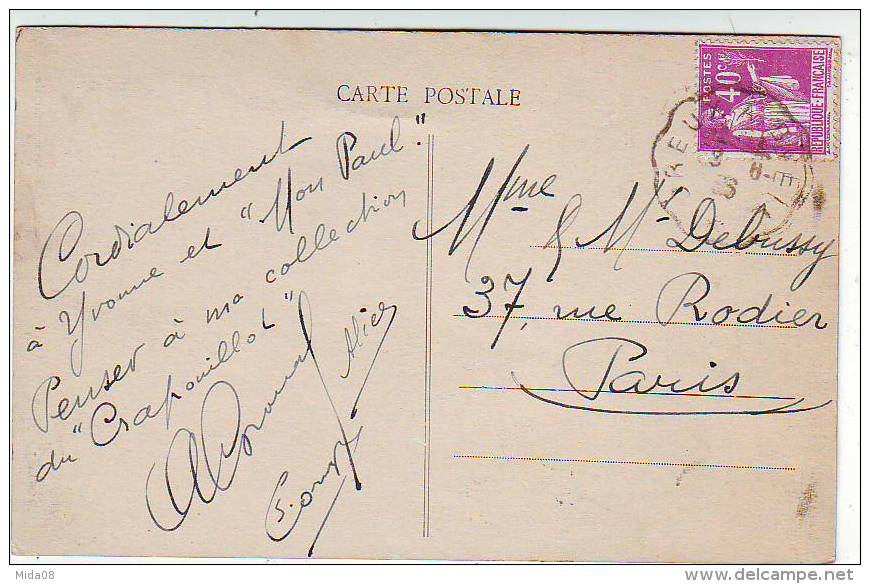 CARTE POSTALE
POSTES
40c
REPUBLIQUE FRANCAISE
Cordialement
à Yvonne et "Mon Paul"
Penser à ma collection
du "Crapouillot"
Alice
Mme & Mr Debussy
37, rue Rodier
Paris
Mida08
www.delcampe.net